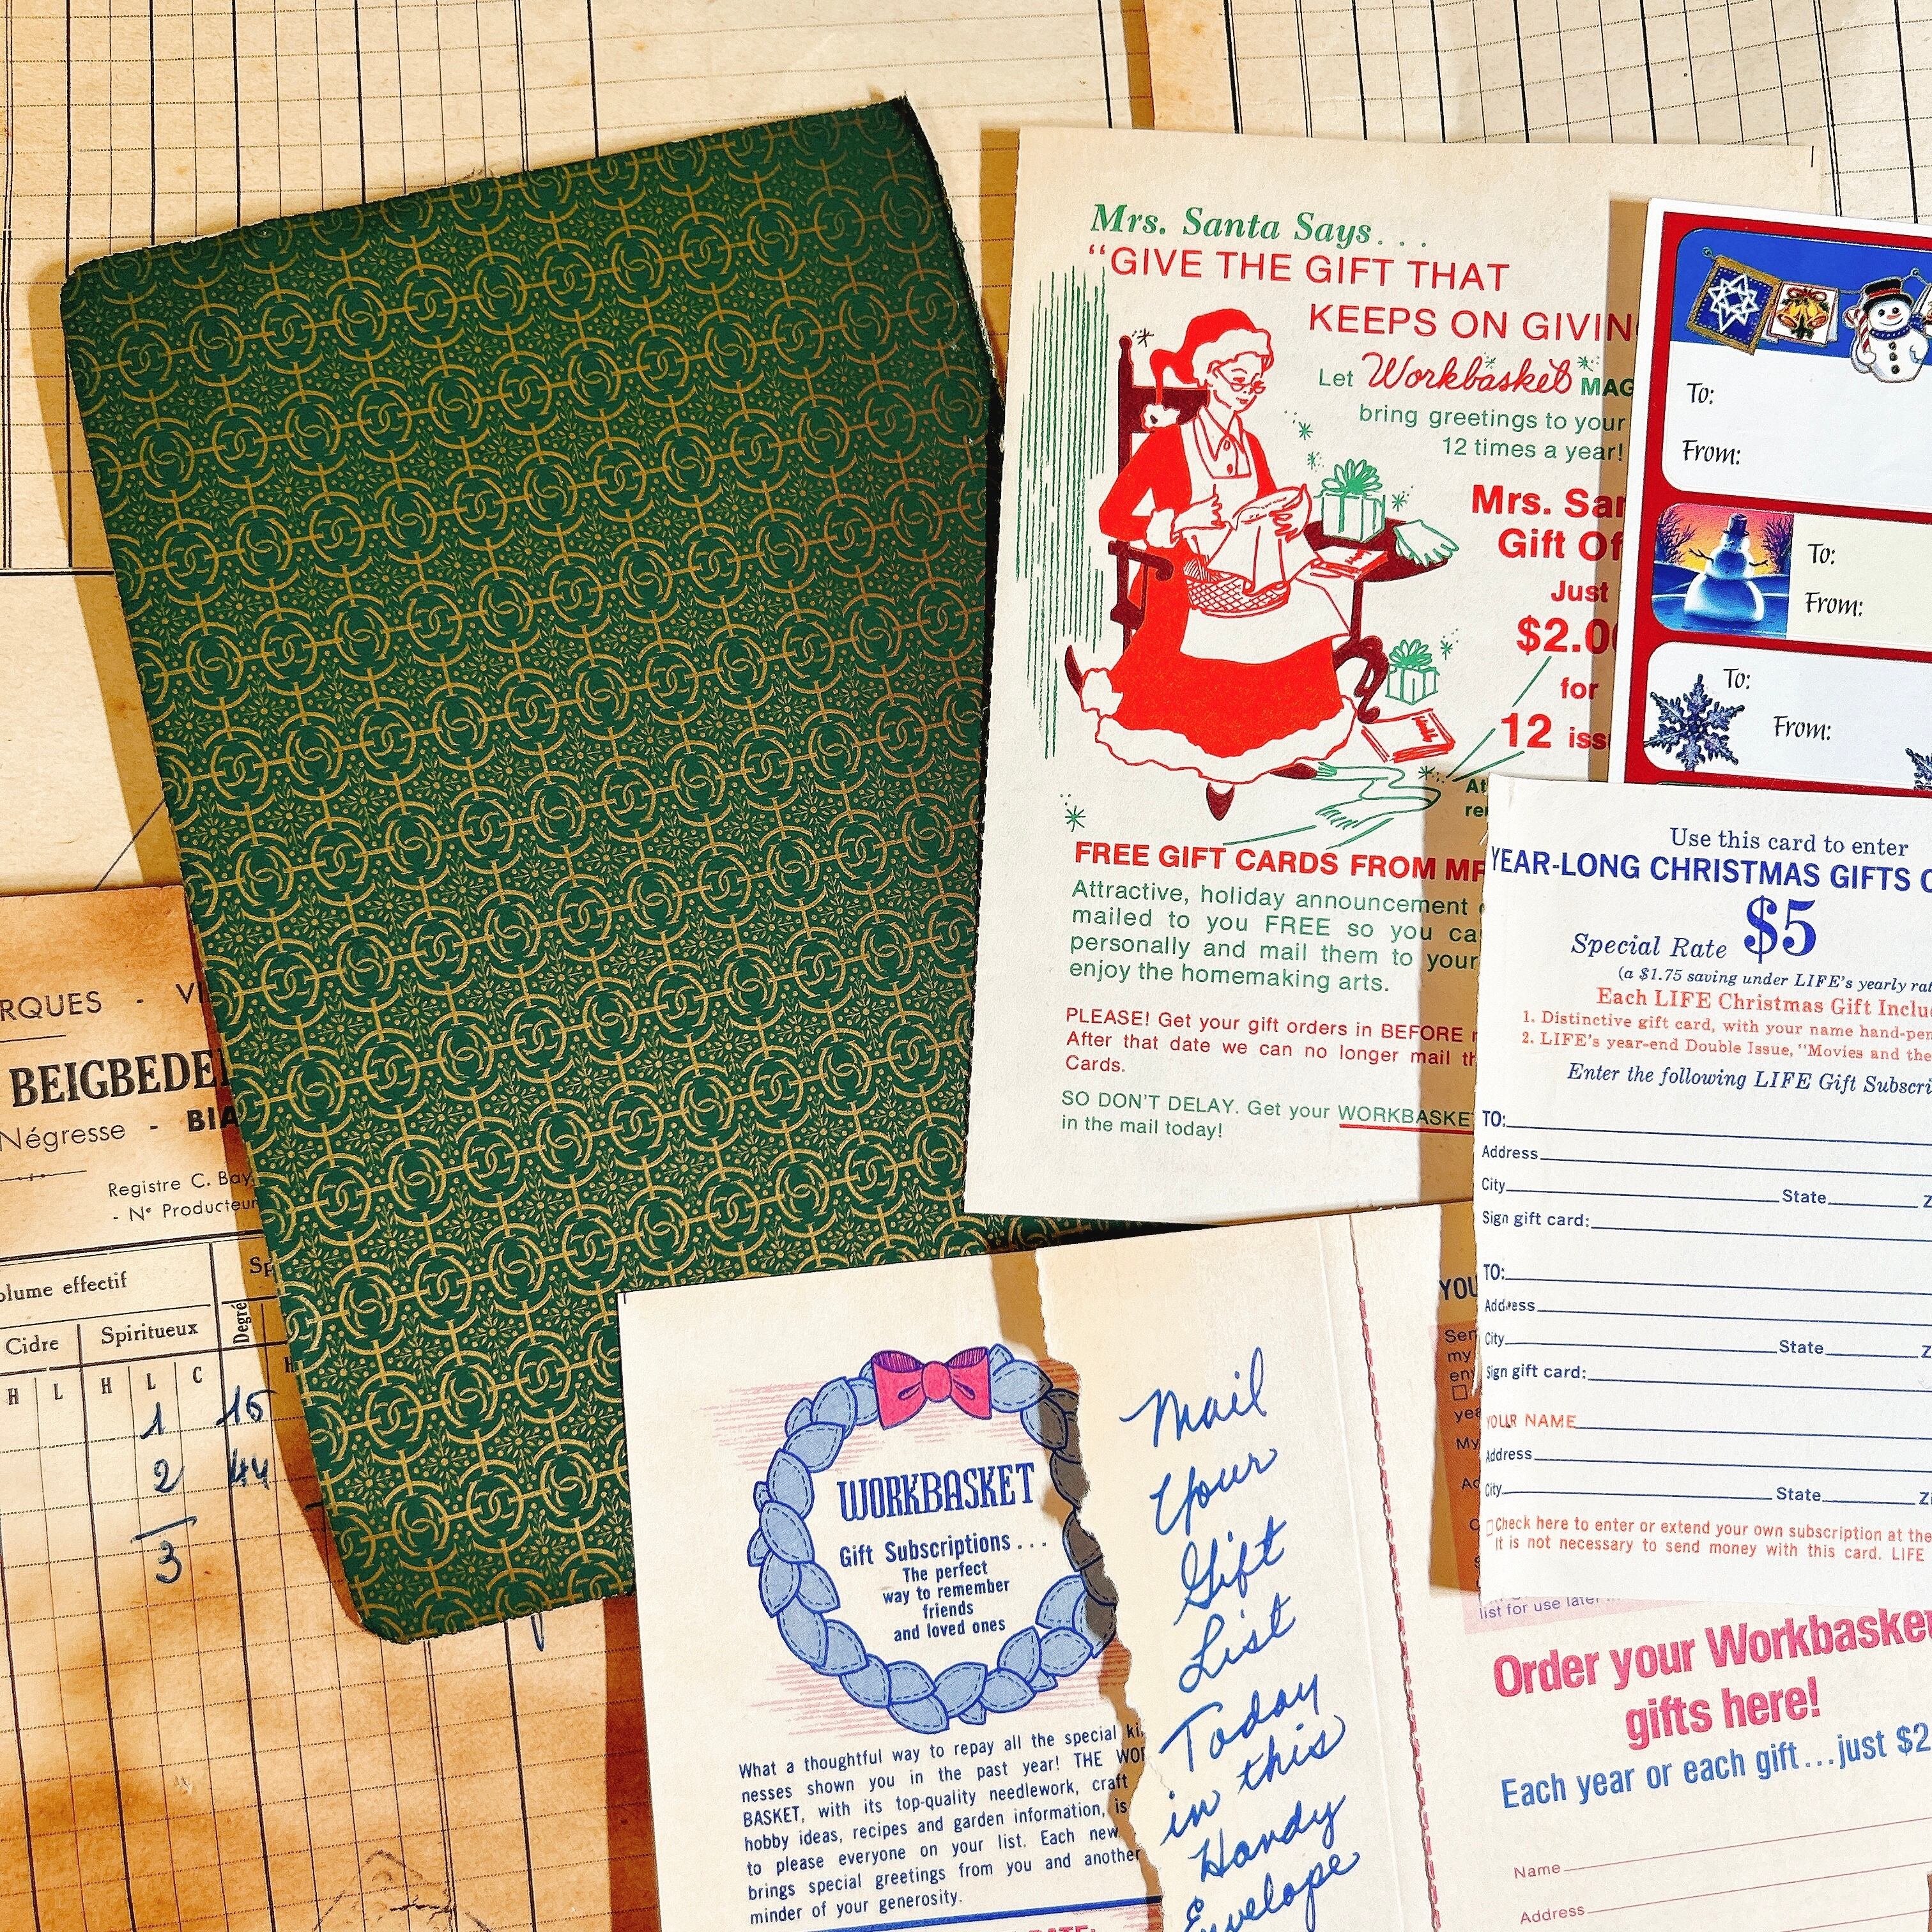 Mrs. Santa Says. . .
"GIVE THE GIFT THAT
KEEPS ON GIVIN
Let Workbasket MAG
bring greetings to your
12 times a year!
Mrs. San
Gift Of
Just
$2.00
for
12 iss
At
FREE GIFT CARDS FROM MR
Attractive, holiday announcement
mailed to you FREE so you ca
personally and mail them to your
enjoy the homemaking arts.
PLEASE! Get your gift orders in BEFORE
After that date we can no longer mail th
Cards.
SO DON'T DELAY. Get your WORKBASKE
in the mail today!
To:
From:
To:
From:
To:
From:
Use this card to enter
YEAR-LONG CHRISTMAS GIFTS
Special Rate $5
(a $1.75 saving under LIFE's yearly rat
Each LIFE Christmas Gift Inclu
1. Distinctive gift card, with your name hand-pen
2. LIFE's year-end Double Issue, "Movies and the
Enter the following LIFE Gift Subscri
TO:
Address
City State Z
Sign gift card:
TO:
Address
City State Z
Sign gift card:
YOUR NAME
Address
City State Zi
Check here to enter or extend your own subscription at the
It is not necessary to send money with this card. LIFE
RQUES - VI
BEIGBEDE
Négresse - BIA
Registre C. Bay
- Nº Producteur
olume effectif
Sp
Cidre Spiritueux Degré
H L H L C
1 15
2 44
3
WORKBASKET
Gift Subscriptions . . .
The perfect
way to remember
friends
and loved ones
What a thoughtful way to repay all the special ki
nesses shown you in the past year! THE WOR
BASKET, with its top-quality needlework, craft
hobby ideas, recipes and garden information, is
to please everyone on your list. Each new
brings special greetings from you and another
minder of your generosity.
Mail
Your
Gift
List
Today
in this
Handy
Envelope
YOU
Sen
my
en
yea
My
list for use later
Order your Workbasket
gifts here!
Each year or each gift...just $2
Name
Address